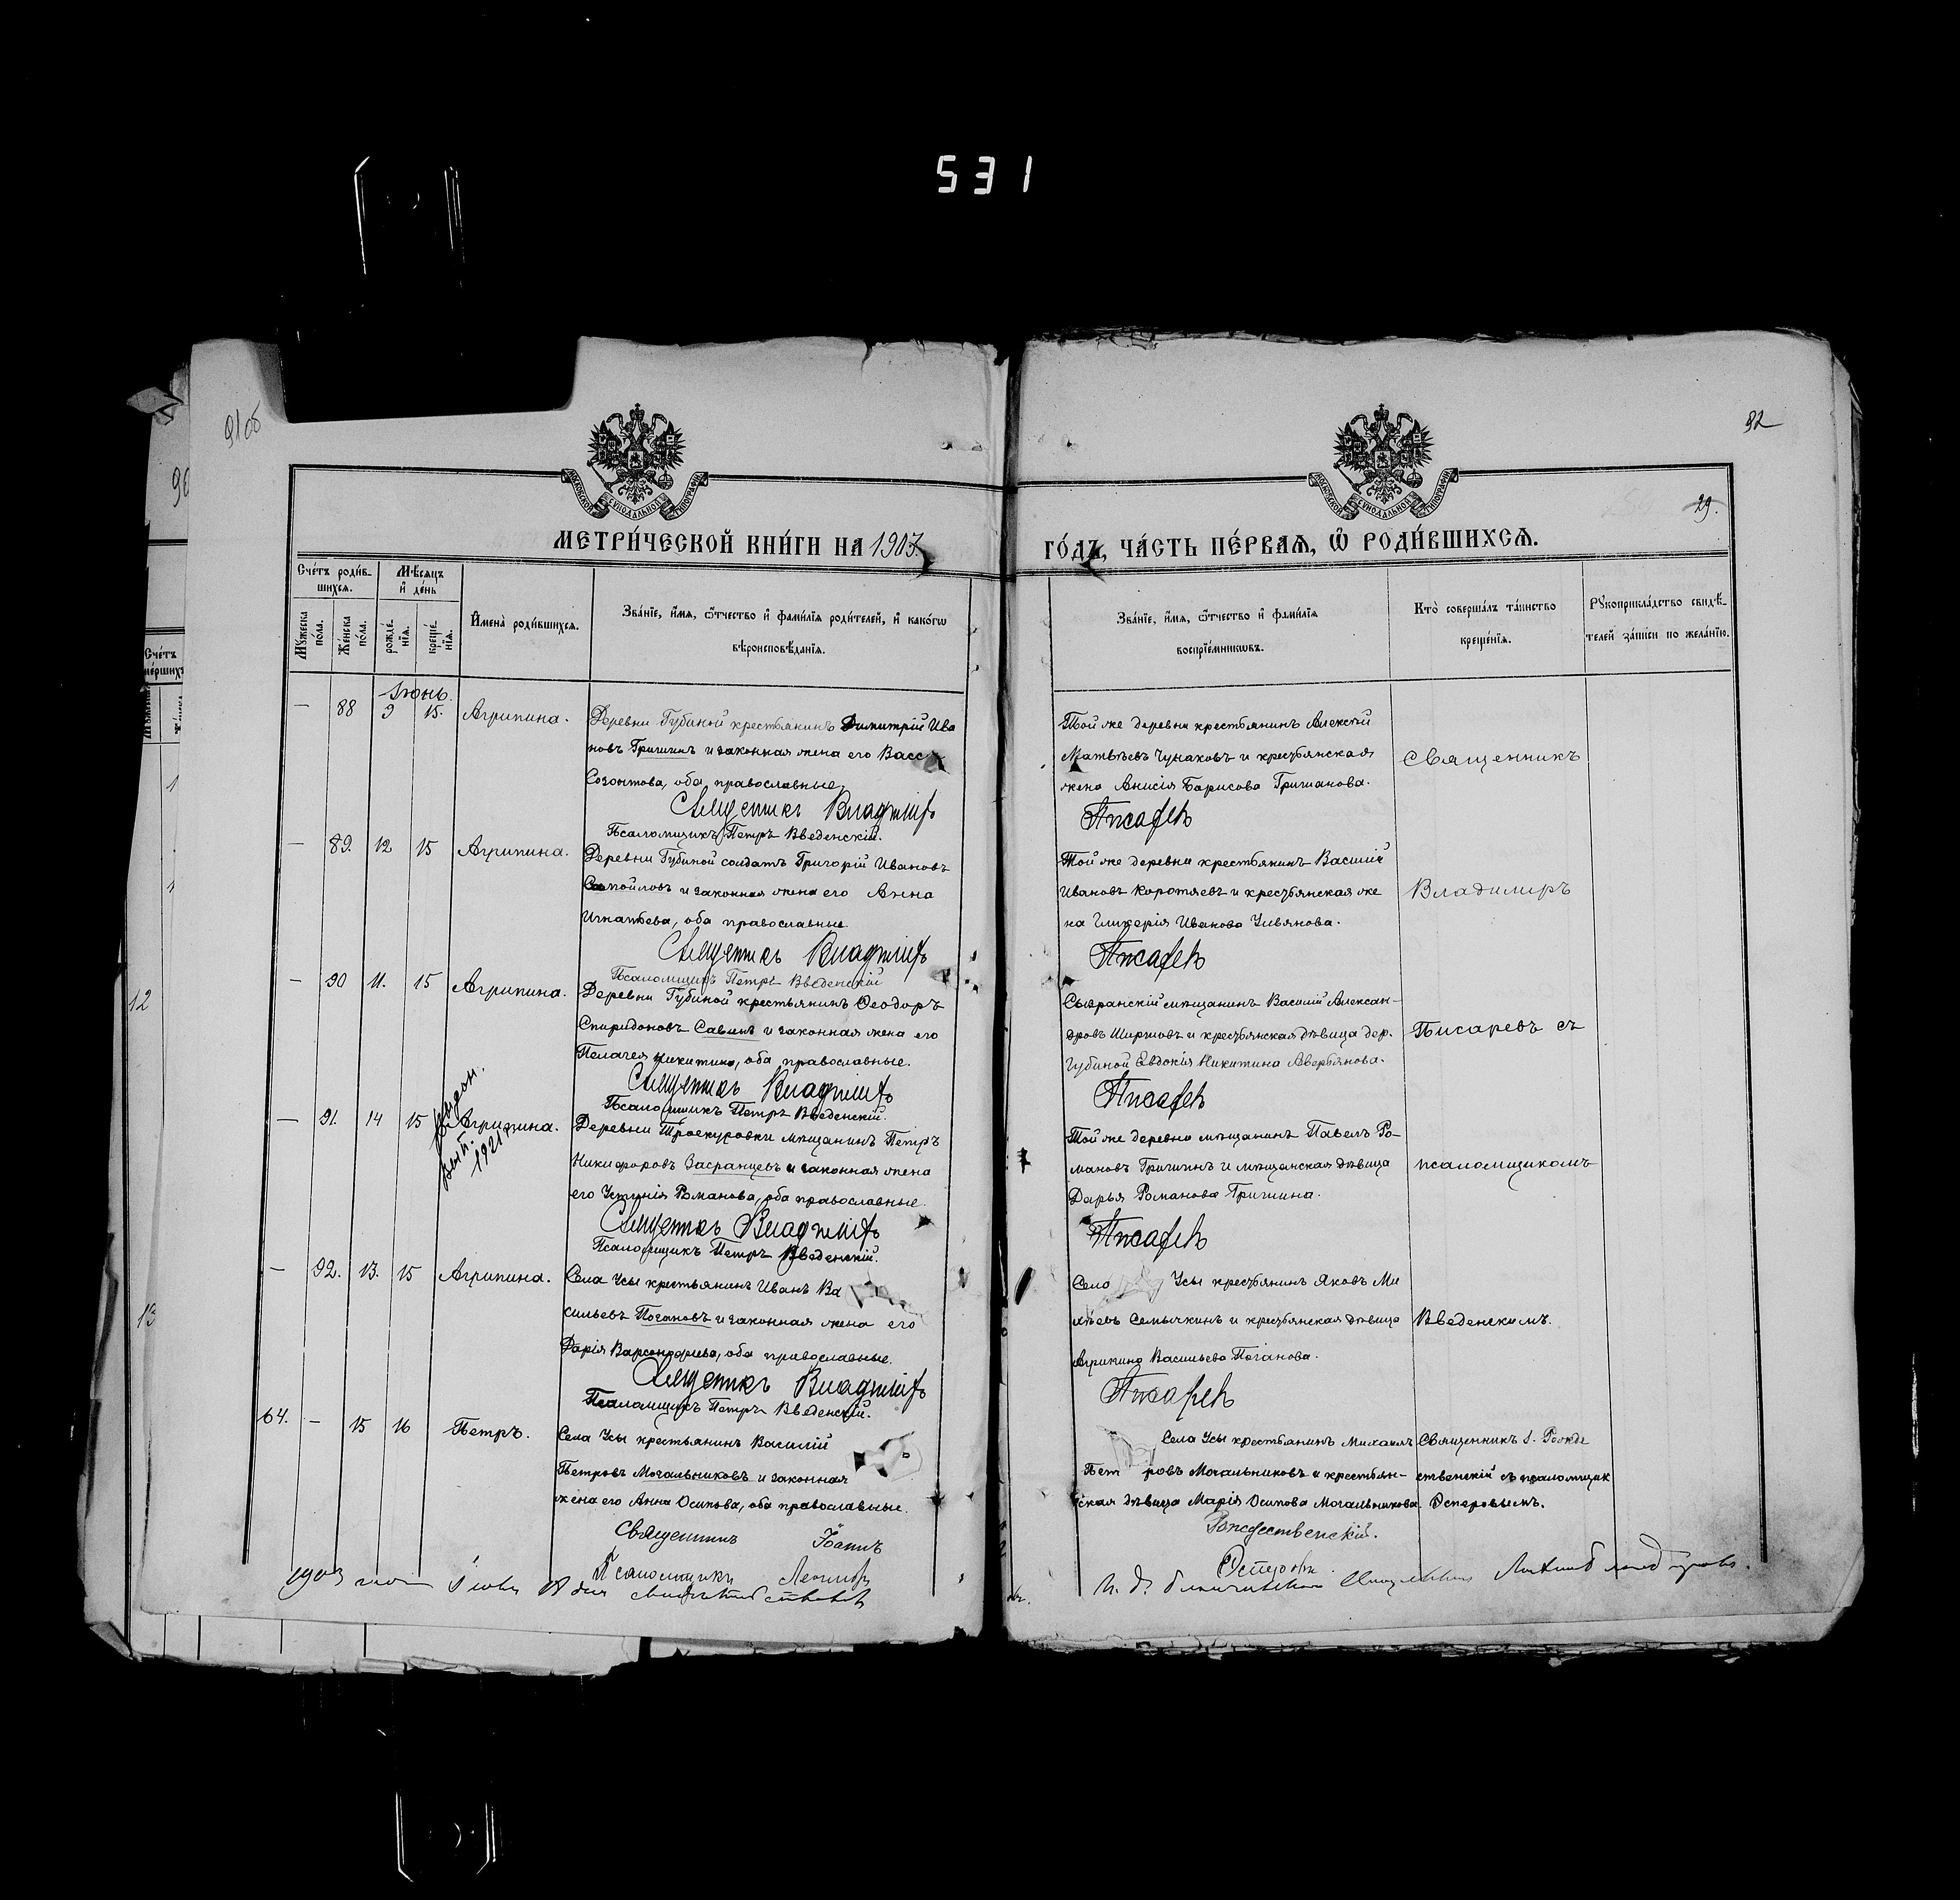 531
91об
92
29.
МОСКОВСКОЙ СУНОДАЛЬНОЙ ТИПОГРАФІИ
МОСКОВСКОЙ СУНОДАЛЬНОЙ ТИПОГРАФІИ
МЕТРИ́ЧЕСКОЙ КНИ́ГИ НА 1903.
ГО́ДЪ, ЧА́СТЬ ПЕ́РВАѦ, Ѽ РОДИ́ВШИХСѦ.
Сче́тъ роди́в-
шихсѧ.
Мѣ́сѧцъ
и҆ де́нь
Мꙋ́жеска по́ла.
Же́нска по́ла.
рожде́нїѧ.
креще́нїѧ.
И҆мена̀ роди́вшихсѧ.
Зва́нїе, и҆́мѧ, ѻ҆́тчество и҆ фами́лїѧ роди́телей, и҆ како́гѡ
вѣроисповѣ́данїѧ.
Зва́нїе, и҆́мѧ, ѻ҆́тчество и҆ фами́лїѧ
воспрїе́мникѡвъ.
Кто̀ соверша́лъ та́инство
креще́нїѧ.
Рꙋкоприкла́дство свидѣ́-
телей за́писи по жела́нїю.
Іюнь.
— 88 9 15. Агрипина.
Деревни Губиной крестьянинъ Димитрій Ива
новъ Гришинъ и законная жена его Васс
Созонтова, оба православные
Священникъ Владиміръ
Псаломщикъ Петръ Введенскій.
Той же деревни крестьянинъ Алексѣй
Матвѣевъ Чунаковъ и крестьянская
жена Анисія Борисова Гришанова.
Писаревъ
Священникъ
— 89. 12 15 Агрипина.
Деревни Губиной солдатъ Григорій Ивановъ
Самойловъ и законная жена его Анна
Игнатьева, оба православные
Священникъ Владиміръ
Псаломщикъ Петръ Введенскій
Той же деревни крестьянинъ Василій
Ивановъ Коротяевъ и крестьянская же
на Гликерія Иванова Ульянова.
Писаревъ
Владиміръ
— 90 11. 15 Агрипина.
Деревни Губиной крестьянинъ Ѳеодоръ
Спиридоновъ Савинъ и законная жена его
Пелагея Никитина, оба православные.
Священникъ Владиміръ
Псаломщикъ Петръ Введенскій.
Сызранскій мѣщанинъ Василій Александ-
ровъ Ширшовъ и крестьянская дѣвица дер.
Губиной Евдокія Никитина Аверьянова.
Писаревъ
Писаревъ съ
— 91. 14 15 Агрипина.
1921
Деревни Троекуровки мѣщанинъ Петръ
Никифоровъ Засранцевъ и законная жена
его Устинія Романова, оба православные.
Священникъ Владиміръ
Псаломщикъ Петръ Введенскій.
Той же деревни мѣщанинъ Павелъ Ро-
мановъ Гришинъ и мѣщанская дѣвица
Дарья Романова Гришина.
Писаревъ
псаломщикомъ
— 92. 13. 15 Агрипина.
Села Усы крестьянинъ Иванъ Ва
сильевъ Погановъ и законная жена его
Дарія Варсонофіева, оба православные.
Священникъ Владиміръ
Псаломщикъ Петръ Введенскій.
Село Усы крестьянинъ Яковъ Ми
хѣевъ Семычкинъ и крестьянская дѣвица
Агрипина Васильева Поганова.
Писаревъ
Введенскимъ.
64. — 15 16 Петръ.
Села Усы крестьянинъ Василій
Петровъ Мочальниковъ и законная
жена его Анна Осипова, оба православные.
Священникъ Іоаннъ
Псаломщикъ
Села Усы крестьянинъ Михаилъ
Петровъ Мочальниковъ и крестьян-
ская дѣвица Марія Осипова Мочальникова.
Рождественскій.
Священникъ І. Рожде
ственскій съ псаломщик
Осперовымъ.
1903 года дня
И. д.